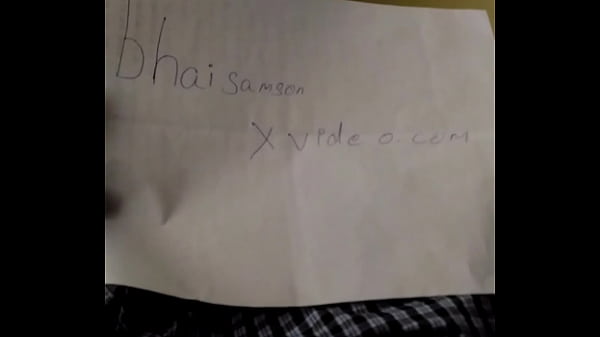 bhai samson
x video.com